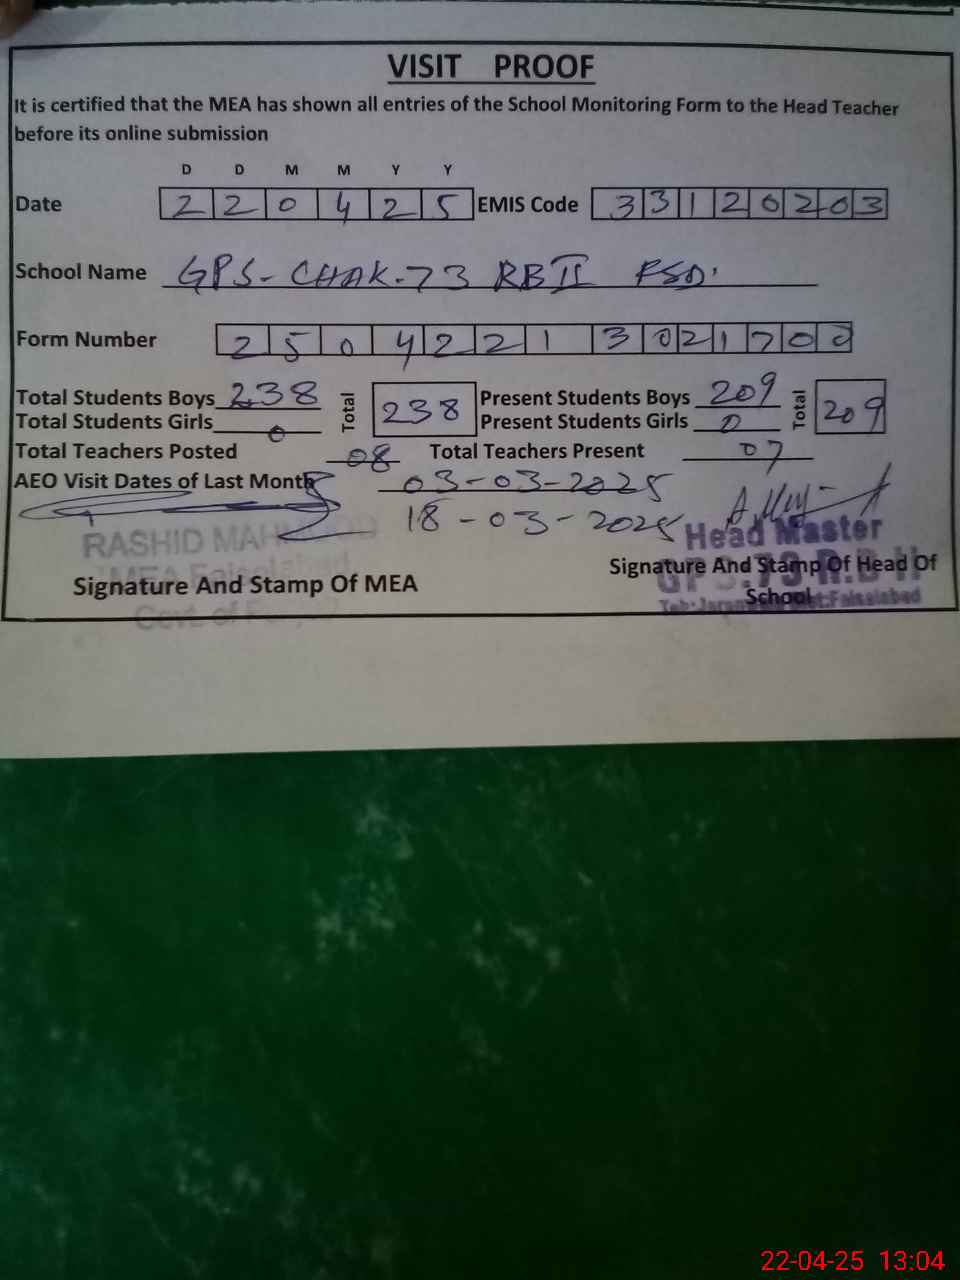 VISIT PROOF
It is certified that the MEA has shown all entries of the School Monitoring Form to the Head Teacher
before its online submission
D D M M Y Y
Date 2 2 0 4 2 5 EMIS Code 3 3 1 2 0 2 0 3
School Name GPS - CHAK - 73 RB II FSD.
Form Number 2 5 0 4 2 2 1 3 0 2 1 7 0 0
Total Students Boys 238 Total 238 Present Students Boys 209 Total 209
Total Students Girls 0 Present Students Girls 0
Total Teachers Posted 08 Total Teachers Present 07
AEO Visit Dates of Last Month 03-03-2025
18-03-2025
RASHID MAHMOOD
MEA Faisalabad
Govt. of
Signature And Stamp Of MEA
Head Master
Signature And Stamp Of Head Of
School
Faisalabad
22-04-25 13:04